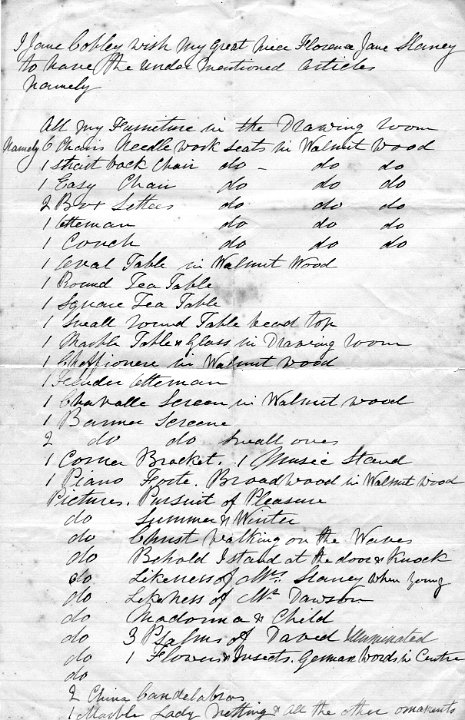 I Jane Cobley wish my great niece Florence Jane Slaney
to have the under mentioned articles
namely
All my Furniture in the Drawing room
Namely 6 Chairs Needle work seats in Walnut Wood
1 strait back Chair do - do do
1 Easy Chair do do do
2 Box Settas do do do
1 otteman do do do
1 Couch do do do
1 oval Table in Walnut Wood
1 Round Tea Table
1 Square Tea Table
1 Small round Table bead top
1 Marble Table & Glass in Drawing room
1 Cheffionere in Walnut wood
1 Fender otteman
1 Chavalle Screen in Walnut wood
1 Banner Screene
2 do do small ones
1 Corner Bracket. 1 Music Stand
1 Piano Forte. Broadwood in Walnut wood
Pictures. Pursuit of Pleasure
do Summer & Winter
do Christ walking on the Waves
do Behold I stand at the door & Knock
do Likeness of Mrs. Slaney when young
do Likeness of Mr Dawson
do Madonna & Child
do 3 Psalms of David Illuminated
do 1 Flowers & Insects. German words in Centre
do
2 China Candelabras
1 Marble Lady Netting & all the other ornaments